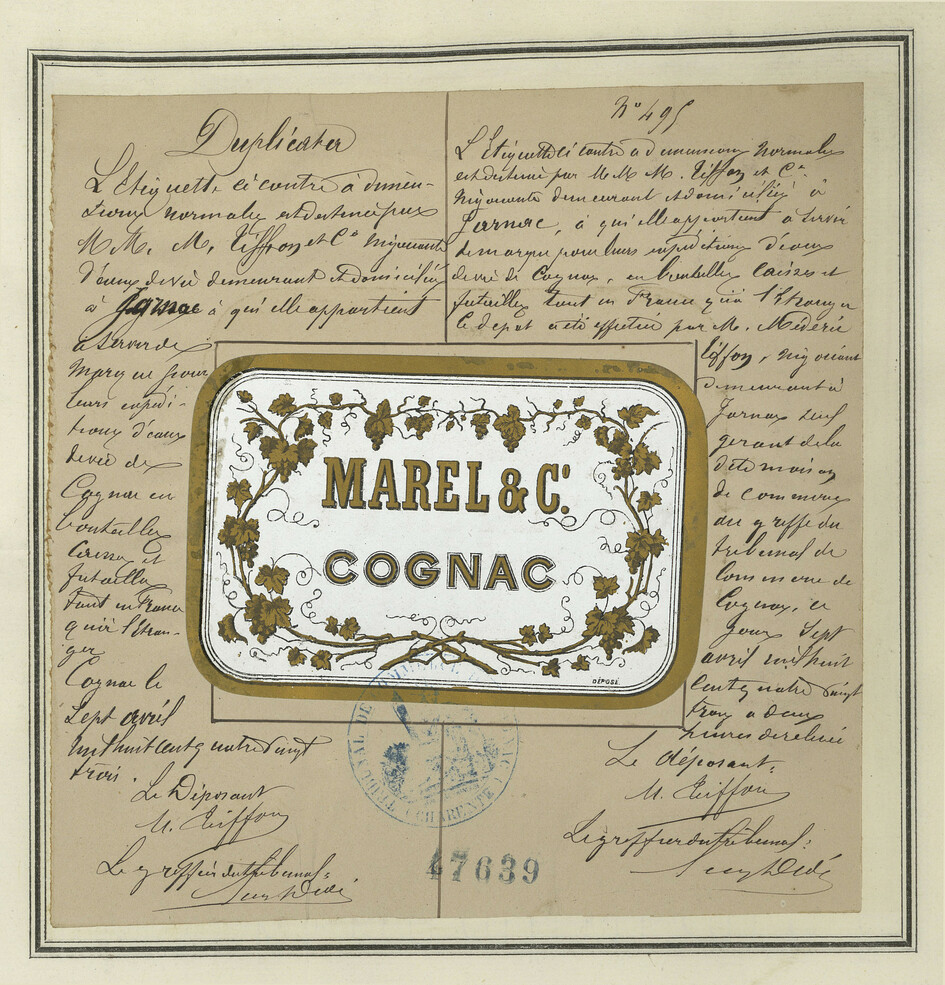 Duplicata
L'Etiquette ci contre à dimen-
sions normales est destinée par
M.M. M. Tiffon et Cie négociants
d'eaux de vie demeurant et domiciliés
à Jarnac à qui elle appartient
à servir de
marque pour
leurs expédi-
tions d'eaux
de vie de
Cognac en
bouteilles
caisses et
futailles
tant en France
qu'à l'étran-
ger
Cognac le
sept avril
mil huit cent quatre vingt
trois.
Le Déposant
M. Tiffon
Le greffier du tribunal:
No 495
L'Etiquette ci contre à dimensions normales
est destinée par M.M. M. Tiffon et Cie
négociants demeurant et domiciliés à
Jarnac, à qui elle appartient à servir
de marque pour leurs expéditions d'eaux
de vie de Cognac, en bouteilles caisses et
futailles tant en France qu'à l'étranger
le dépôt a été effectué par M. Médéric
Tiffon, négociant
demeurant à
Jarnac seul
gérant de la
dite maison
de commerce
au greffe du
tribunal de
commerce de
Cognac, ce
jour sept
avril mil huit
cent quatre vingt
trois à deux
heures de relevée
Le déposant:
M. Tiffon
Le greffier du tribunal:
MAREL & Cie.
COGNAC
DÉPOSÉ.
TRIBUNAL DE COMMERCE
CHARENTE
47639